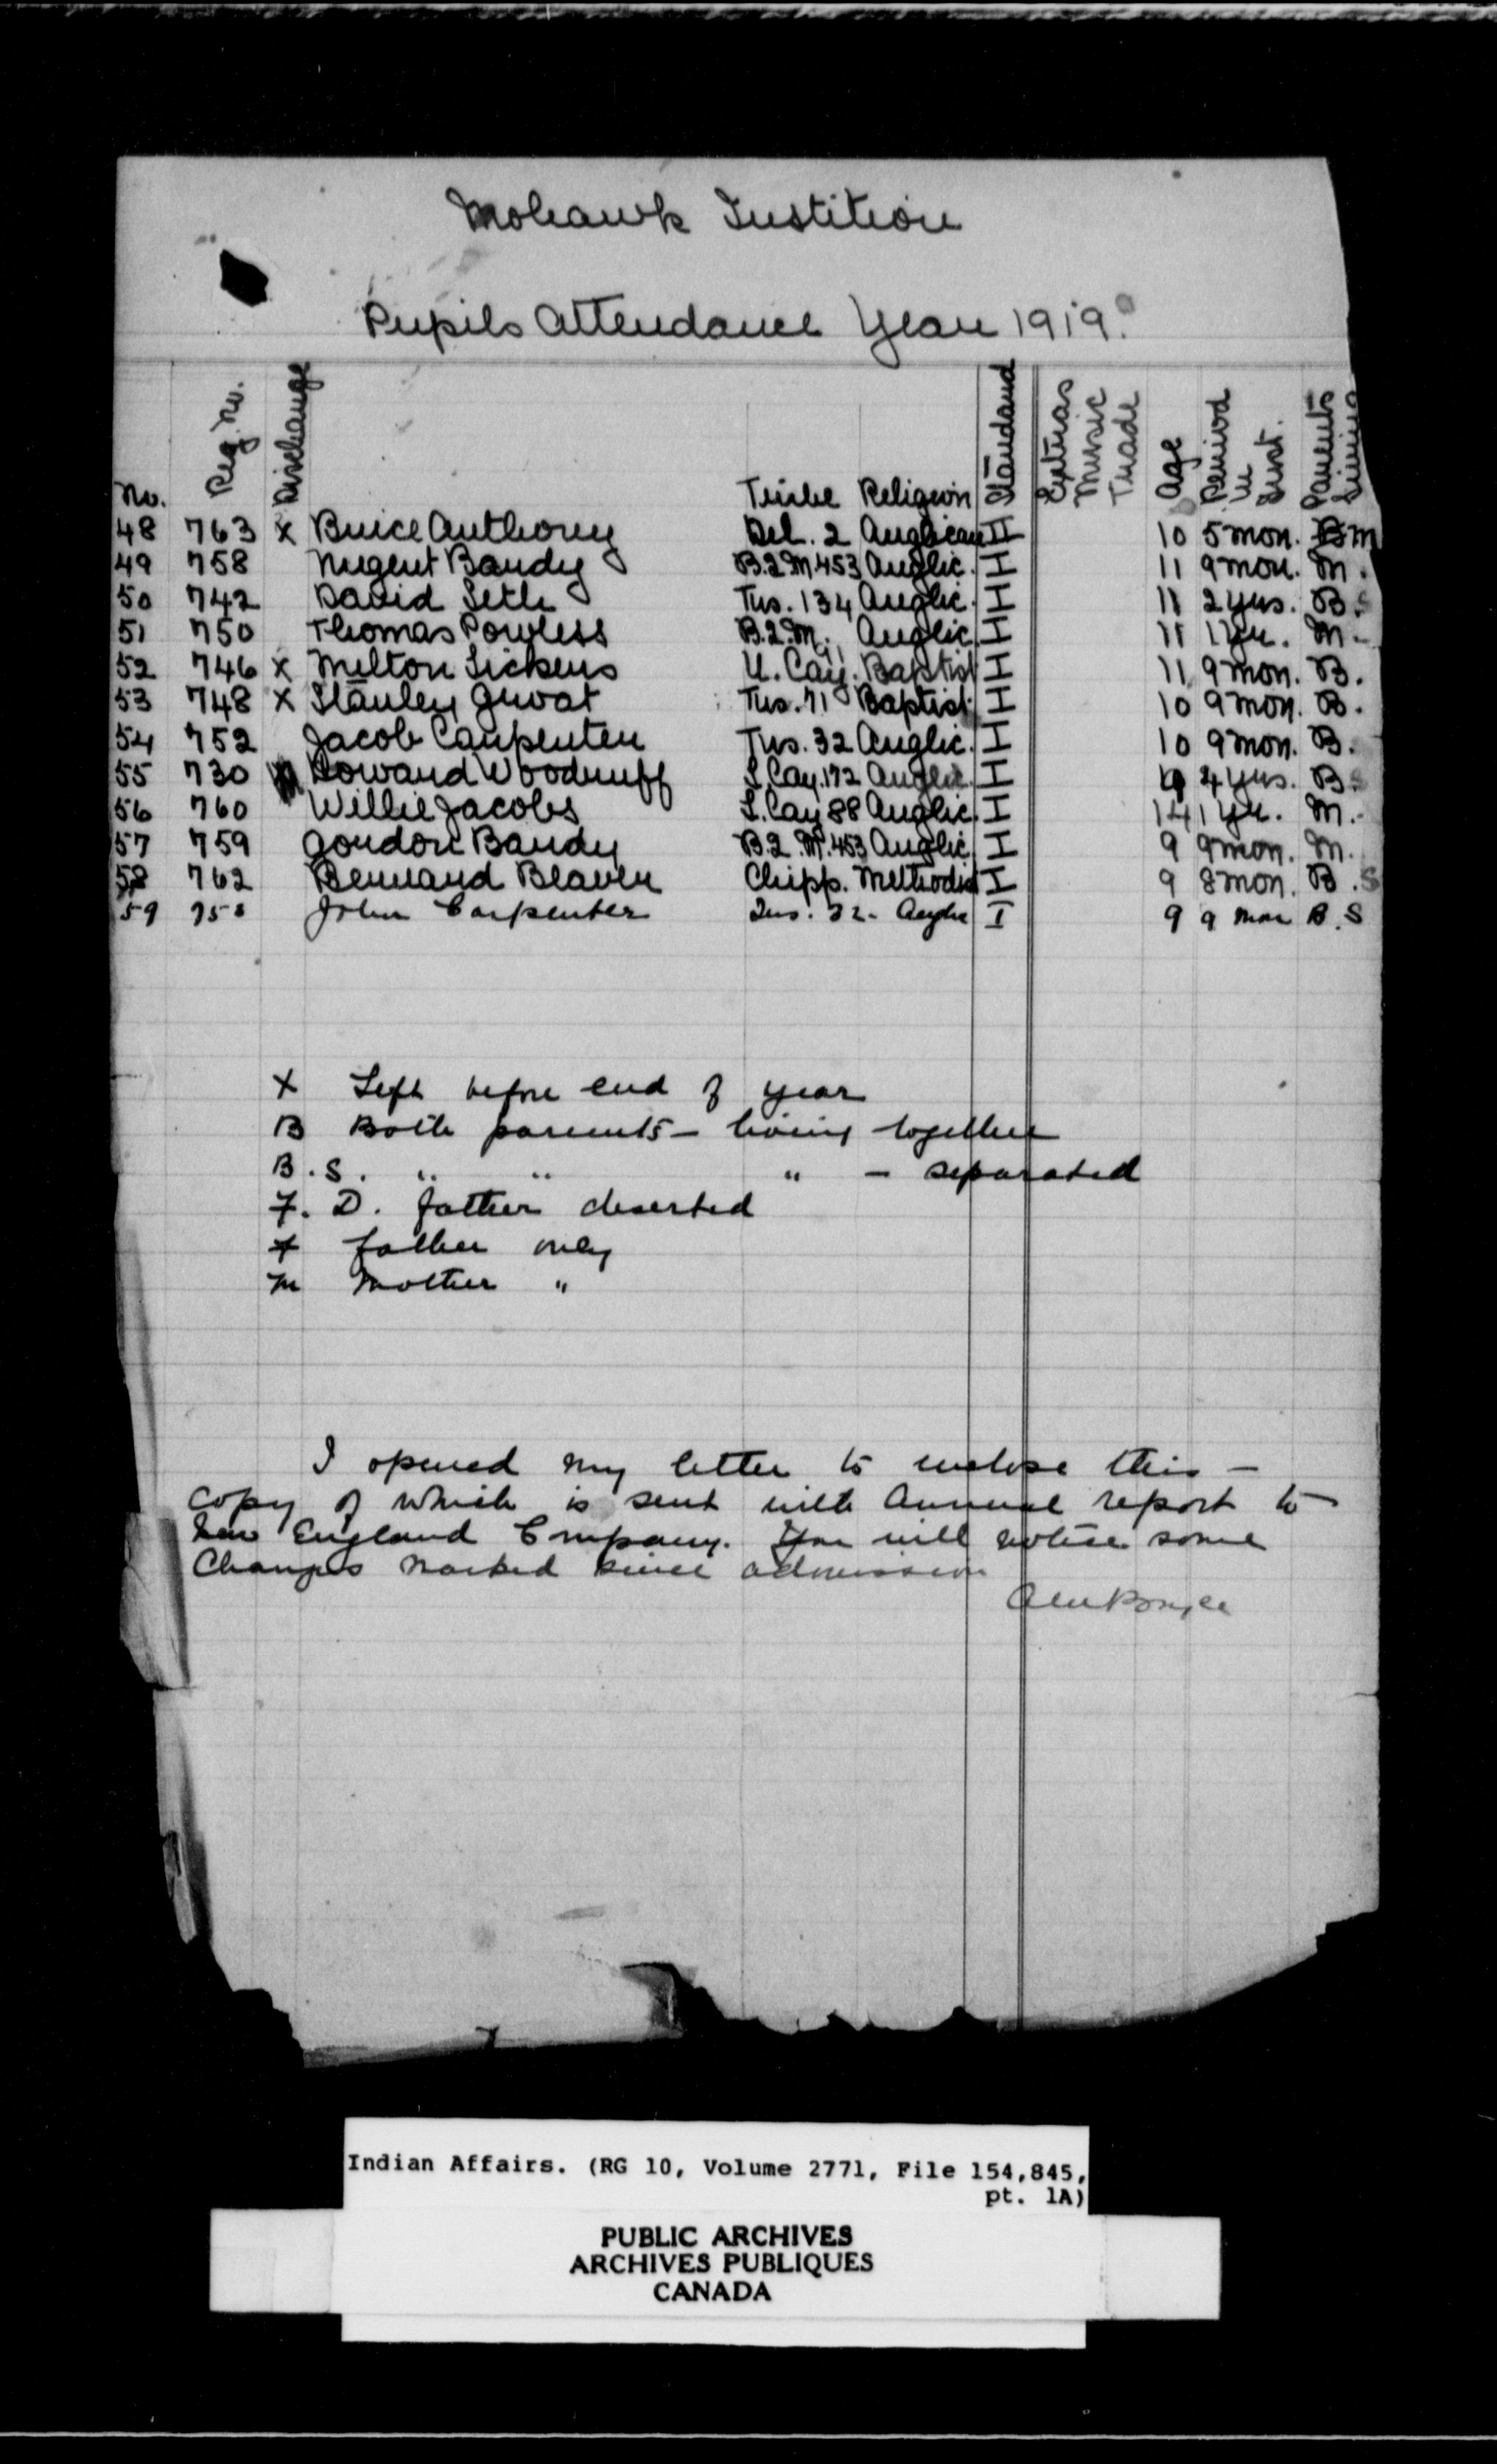 Mohawk Institution
Pupils Attendance Year 1919.
No. Reg. No. Discharge Tribe Religion Standard Extras Music Trade Age Period in Inst. Parents Living
48 763 x Bruce Anthony Del. 2 Anglican II 10 5 mon. B m
49 758 Nugent Bandy B.2 M. 453 Anglic. I 11 9 mon. M.
50 742 David Seth Tus. 134 Anglic. I 11 2 yrs. B. S
51 750 Thomas Powless B.2.M. Anglic. I 11 1 yr. M.
52 746 x Milton Sickens U. Cay. 91 Baptist I 11 9 mon. B.
53 748 x Stanley Groat Tus. 71 Baptist I 10 9 mon. B.
54 752 Jacob Carpenter Tus. 32 Anglic. I 10 9 mon. B.
55 730 Howard Woodruff L. Cay. 172 Anglic. I 9 4 yrs. B. S
56 760 Willie Jacobs L. Cay 88 Anglic. I 14 1 yr. M.
57 759 Gordon Bandy B.2 M. 453 Anglic. I 9 9 mon. M.
58 762 Bernard Beaver Chipp. Methodist I 9 8 mon. B. S
59 John Carpenter Tus. 32 - Anglic I 9 9 mon B. S
X Left before end of year
B Both parents - living together
B.S. " " " - separated
F. D. father deserted
F father only
M Mother "
I opened my letter to enclose this -
copy of which is sent with Annual report to
New England Company. You will notice some
Changes marked since admission
Indian Affairs. (RG 10, Volume 2771, File 154,845,
pt. 1A)
PUBLIC ARCHIVES
ARCHIVES PUBLIQUES
CANADA